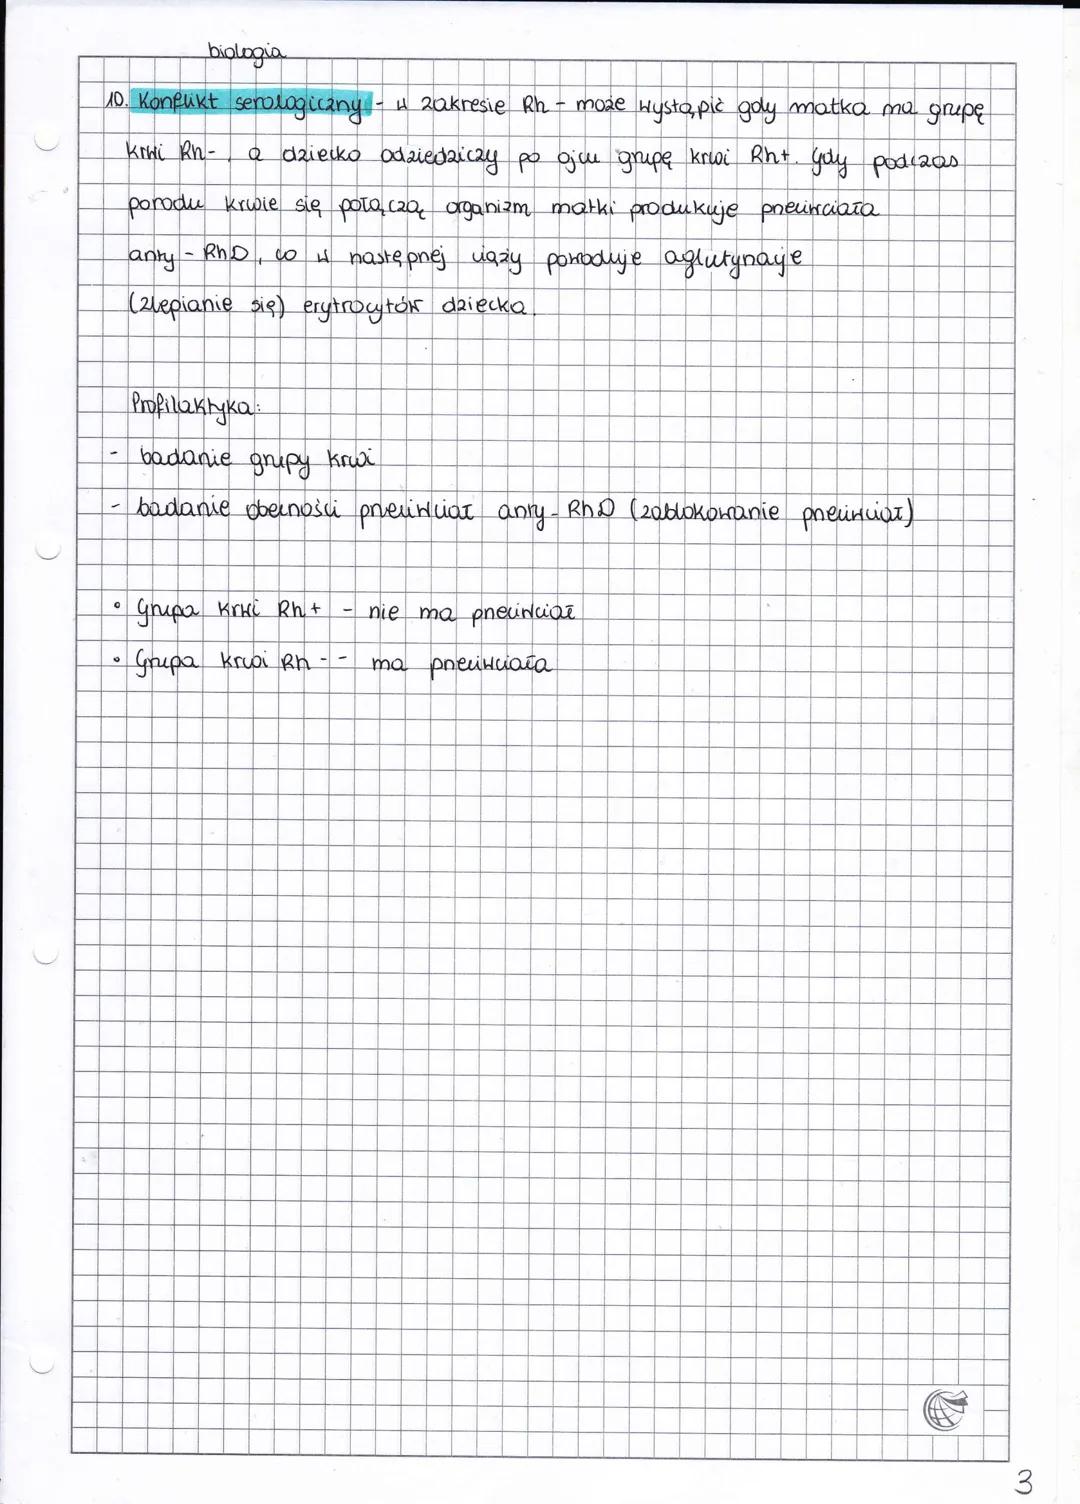 biologia
10. Konflikt serologiczny - w zakresie Rh - może wystąpić gdy matka ma grupę
krwi Rh-, a dziecko odziedziczy po ojcu grupę krwi Rh+. Gdy podczas
porodu krwie się połączą organizm matki produkuje przeciwciała
anty - RhD, co w następnej ciąży powoduje aglutynacje
(zlepianie się) erytrocytów dziecka.
Profilaktyka:
- badanie grupy krwi
- badanie obecności przeciwciał anty - RhD (zablokowanie przeciwciał)
• Grupa krwi Rh+ - nie ma przeciwciał
• Grupa krwi Rh- - ma przeciwciała
3